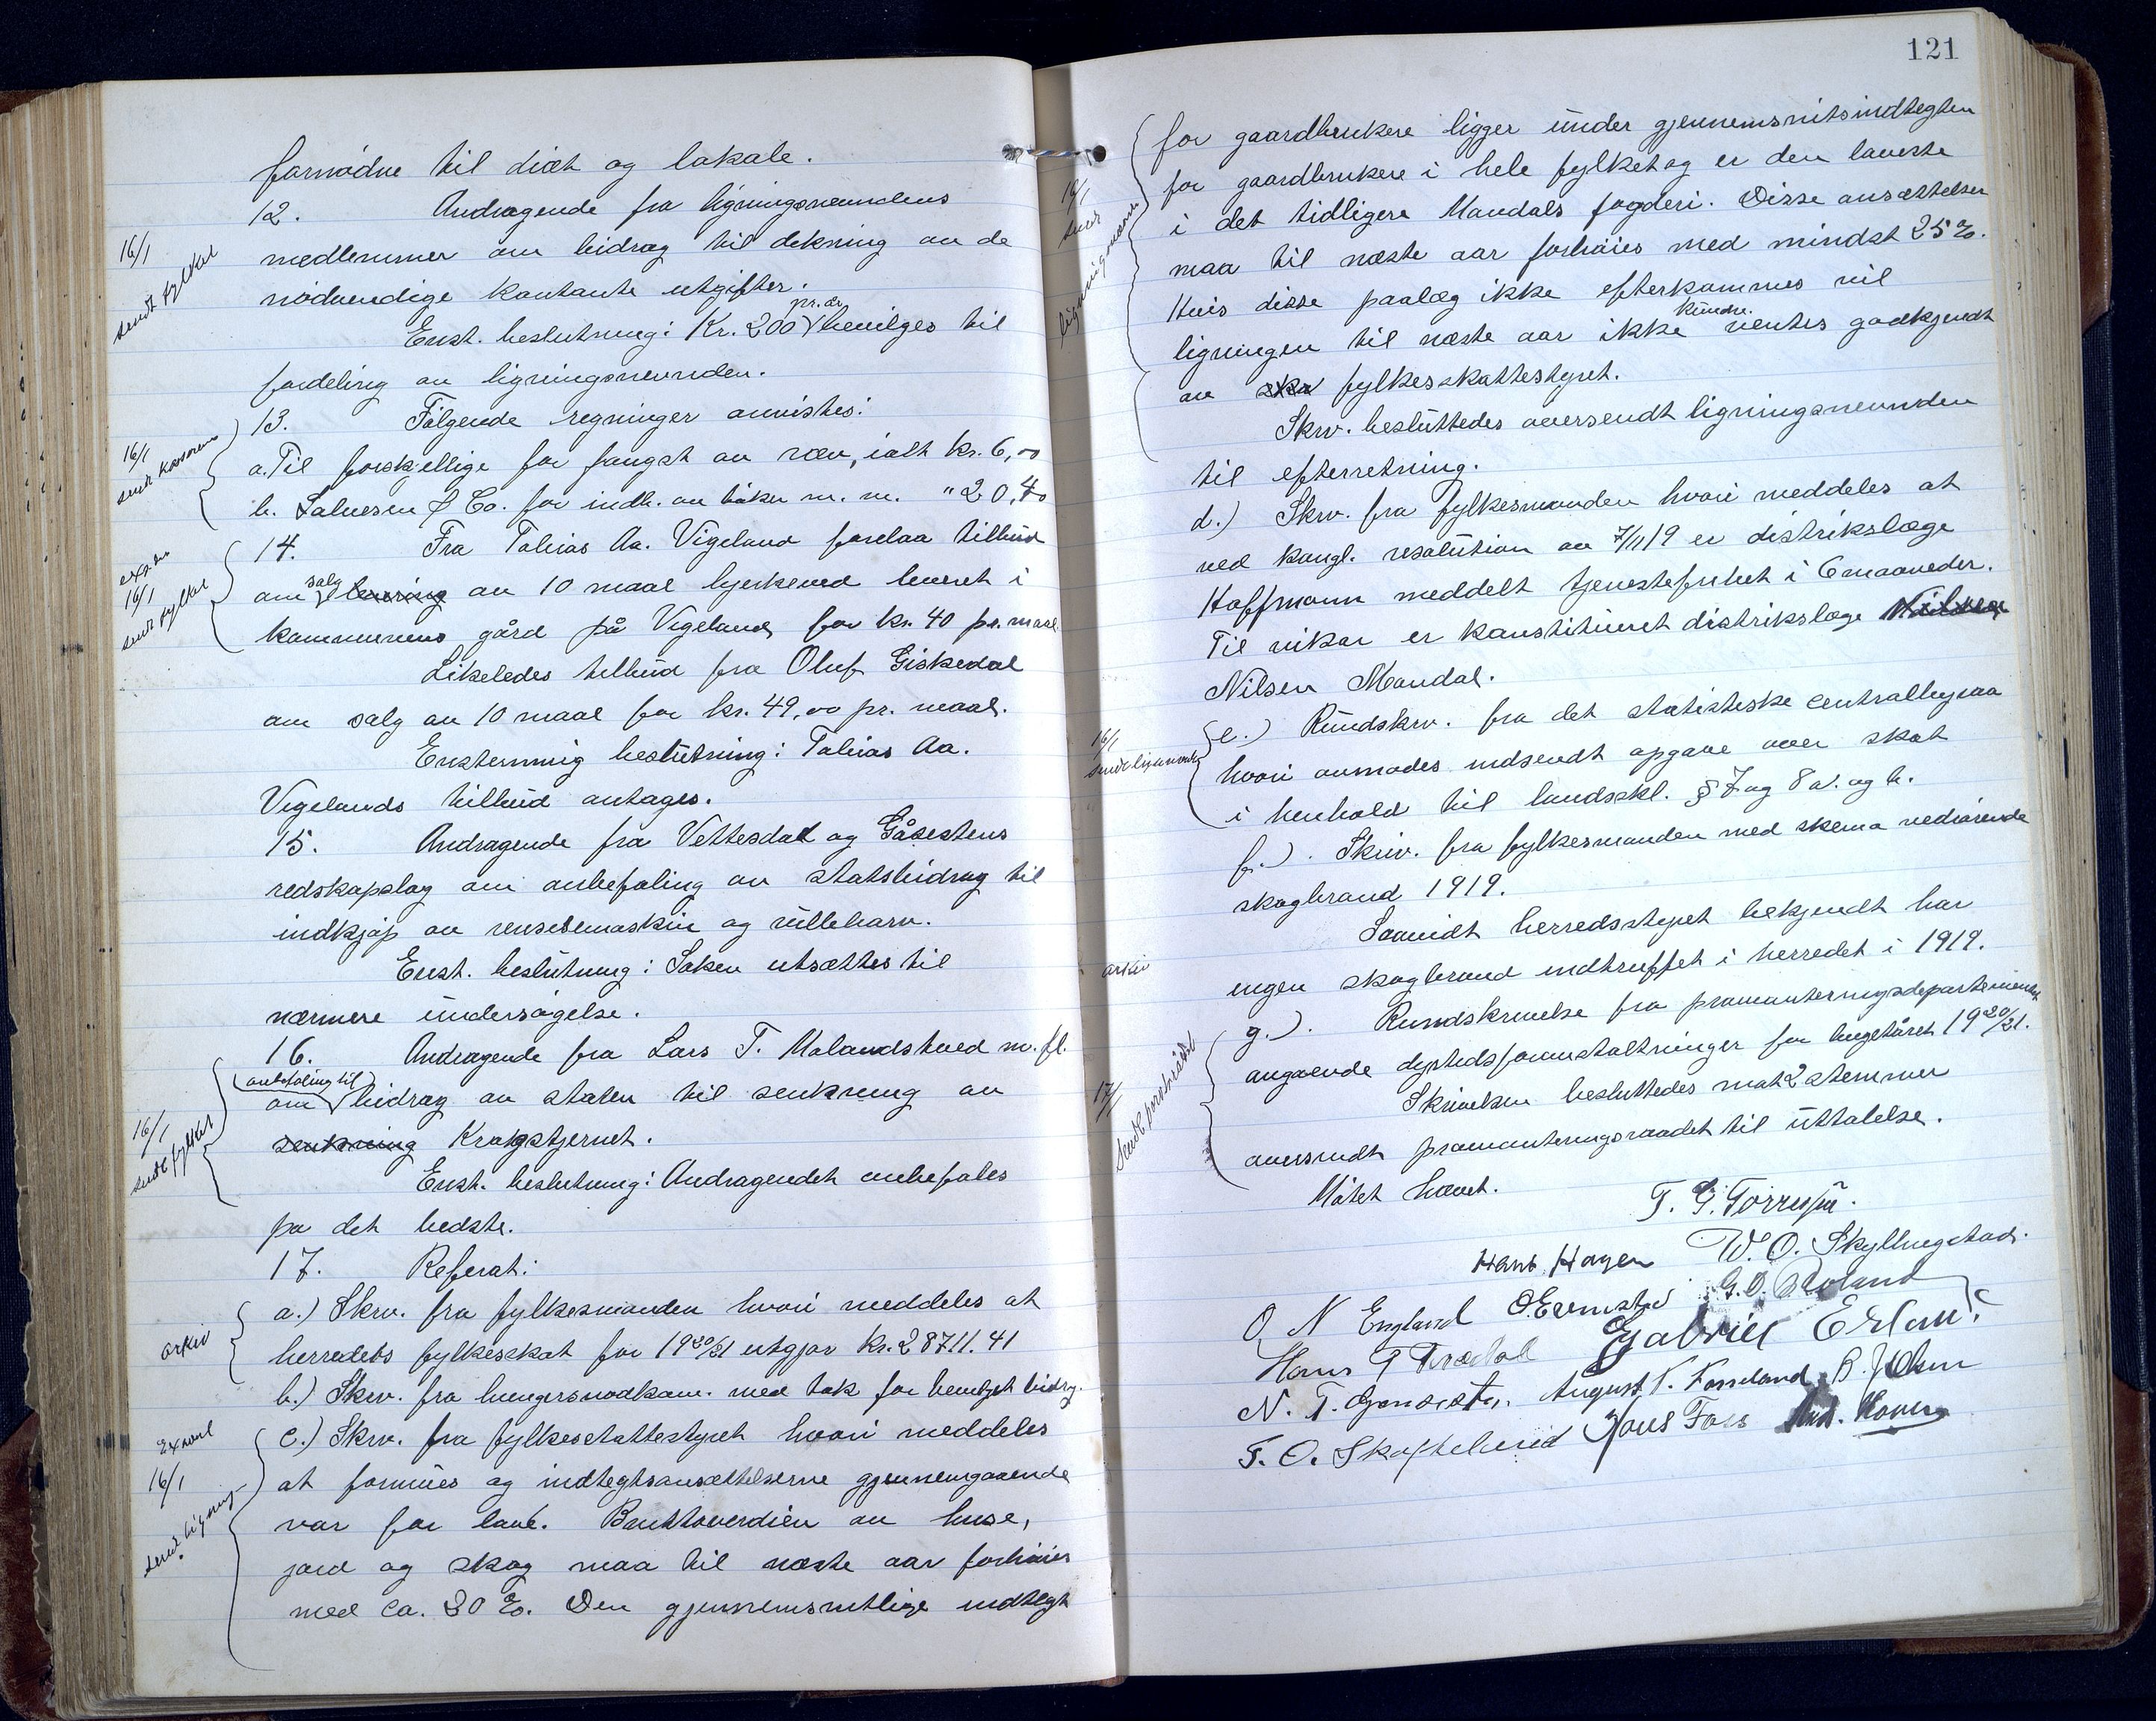 fornødne til diæt og lokale.
12. Andragende fra ligningsnevndens
16/1
sendt fylket
medlemmer om bidrag til dekning av de
nødvendige kontante utgifter.
Enst. beslutning: Kr. 200 pr. år bevilges til
fordeling av ligningsnevnden.
13. Følgende regninger anvistes:
16/1
sendt kasserer
a. Til forskjellige for fangst av ræv, ialt kr. 6,00
b. Salvesen & Co. for indb. av bøker m. m. " 20,40
14. Fra Tobias Aa. Vigeland forelaa tilbud
16/1
sendt fylket
om salg levering av 10 maal bjerkeved leveret i
kommunens gård på Vigeland for kr. 40 pr. maal.
Likeledes tilbud fra Oluf Giskedal
om salg av 10 maal for kr. 49,00 pr. maal.
Enstemmig beslutning: Tobias Aa.
Vigelands tilbud antages.
15. Andragende fra Vettesdal og Gåsestens
redskapslag om anbefaling av statsbidrag til
indkjøp av rensemaskin og rulleharv.
Enst. beslutning: Saken utsættes til
nærmere undersøgelse.
16. Andragende fra Lars T. Molandshved m. fl.
16/1
sendt fylket
om anbefaling til bidrag av staten til senkning av
senkning Krogstjernet.
Enst. beslutning: Andragendet anbefales
på det bedste.
17. Referat:
arkiv
a.) Skrv. fra fylkesmanden hvori meddeles at
herredets fylkesskat for 1920/21 utgjør kr. 28711.41
b.) Skrv. fra hungersnødkom. med tak for bevilget bidrag.
16/1
sendt ligning
c.) Skrv. fra fylkesskattestyret hvori meddeles
at formues og indtegtsansættelserne gjennemgaaende
var for lave. Bruttoverdien av huse,
jord og skog maa til næste aar forhøies
med ca. 30 %. Den gjennemsnitlige indtegt
121
19/1
sendt
ligningsnevnd
for gaardbrukere ligger under gjennemsnitsindtegten
for gaardbrukere i hele fylket og er den laveste
i det tidligere Mandals fogderi. Disse ansættelser
maa til næste aar forhøies med mindst 25 %.
Hvis disse paalæg ikke efterkommes vil
ligningen til næste aar ikke kunne ventes godkjendt
av ska fylkesskattestyret.
Skrv. besluttedes oversendt ligningsnevnden
til efterretning.
d.) Skrv. fra fylkesmanden hvori meddeles at
ved kongl. resolution av 7/11 19 er distrikslæge
Hoffmann meddelt tjenestefrihet i 6 maaneder.
Til vikar er konstitueret distrikslæge
Nilsen Mandal.
16/1
e.) Rundskrv. fra det statistiske centralbyraa
hvori anmodes indsendt opgave over skat
i henhold til landsskl. § 7 og 8 a. og b.
f.). Skriv. fra fylkesmanden med skema vedrørende
skogbrand 1919.
Saavidt herredsstyret bekjendt har
arkiv
ingen skogbrand indtruffet i herredet i 1919.
g.). Rundskrivelse fra provianteringsdepartementet
17/1
angaaende dyrtidsforanstaltninger for budgetåret 1920/21.
Skrivelsen besluttedes mot 2 stemmer
oversendt provianteringsraadet til uttalelse.
Møtet hævet.
T. G. Torresen.
Hans Hagen W. O. Skyllingstad.
O. N England G. O. Roland
Hans G Trædal Gabriel
August K. Fosseland B. J. Olsen
T. O. Skofteland Jons Foss